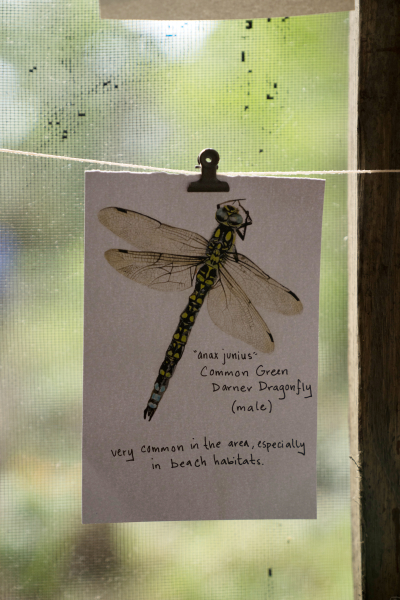 "anax junius"
Common Green
Darner Dragonfly
(male)
very common in the area, especially
in beach habitats.